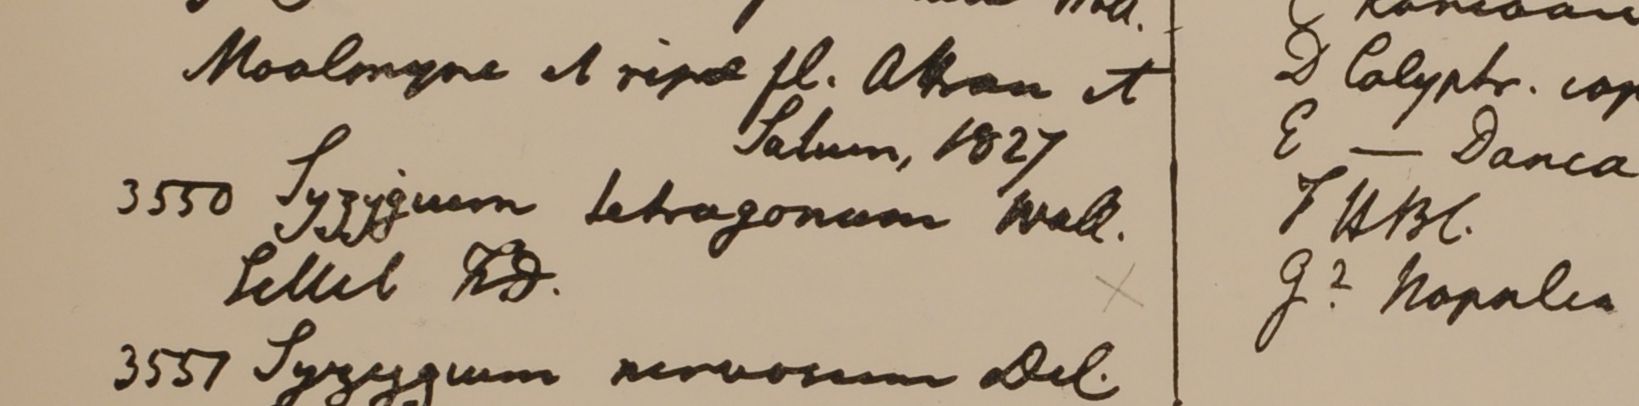 Wall.
Moalmyne et ripæ fl. Attran et
Salum, 1827
3550 Syzygium tetragonum Wall.
Sellet FD.
3551 Syzygium nervosum Del.
D Calyptr. cap
E — Danca
F HBC.
G? Napalia